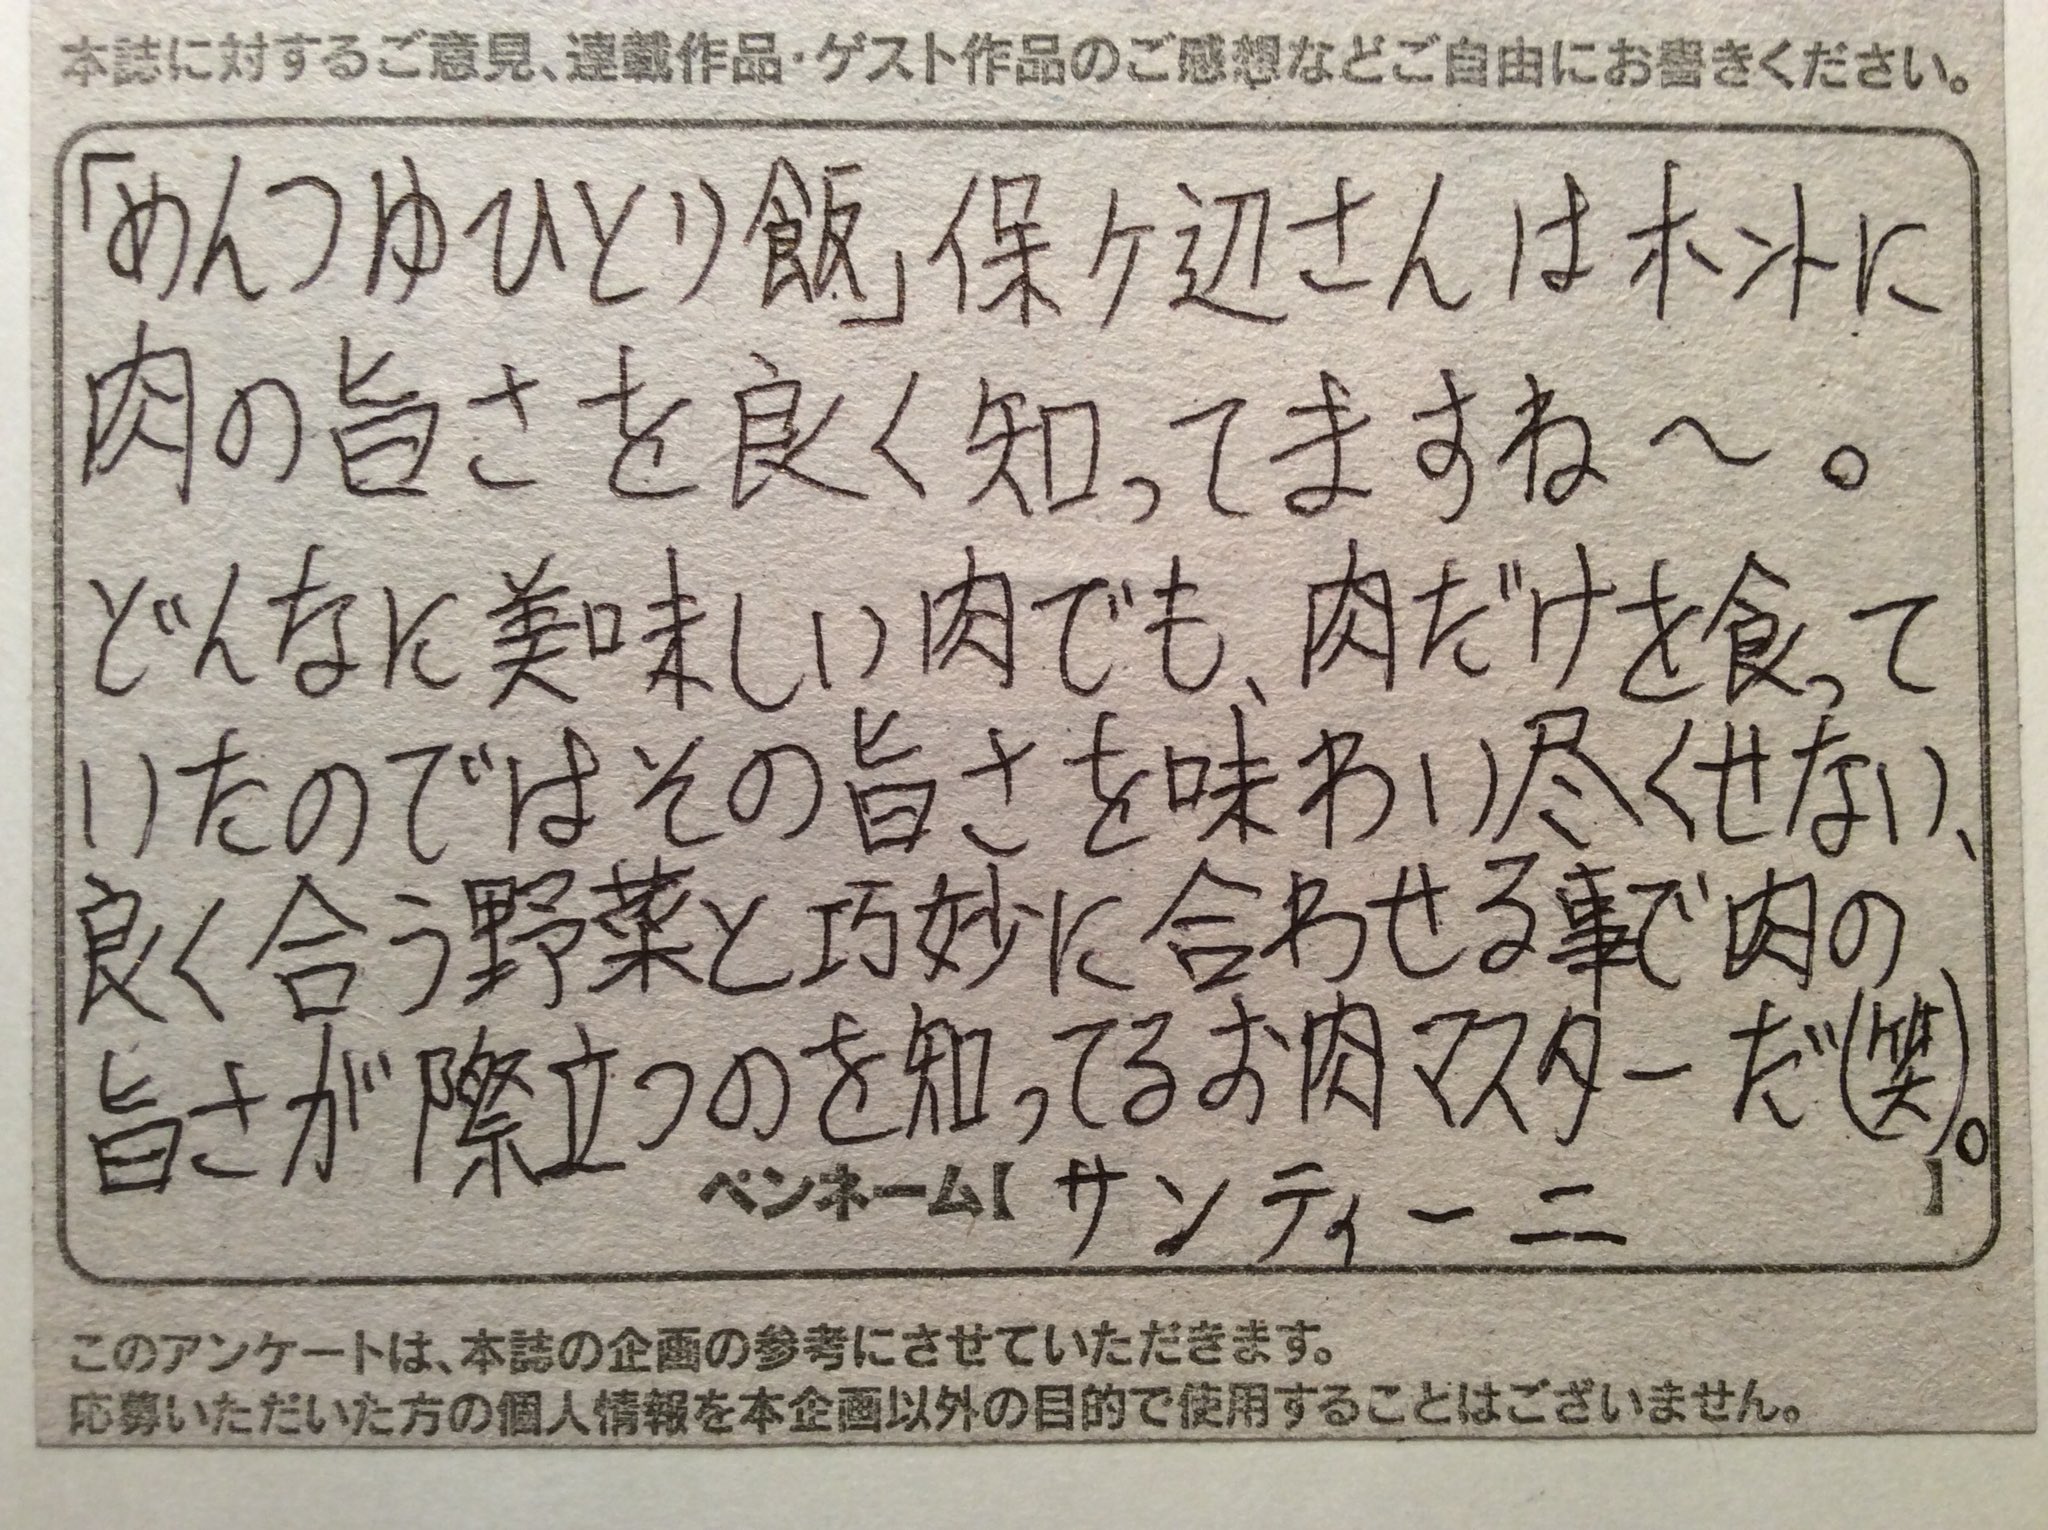 本誌に対するご意見、連載作品・ゲスト作品のご感想などご自由にお書きください。
「めんつゆひとり飯」保ヶ辺さんはホントに
肉の旨さを良く知ってますね〜。
どんなに美味しい肉でも、肉だけを食って
いたのではその旨さを味わい尽くせない、
良く合う野菜と巧妙に合わせる事で肉の
旨さが際立つのを知ってるお肉マスターだ(笑)。
ペンネーム【サンティーニ】
このアンケートは、本誌の企画の参考にさせていただきます。
応募いただいた方の個人情報を本企画以外の目的で使用することはございません。